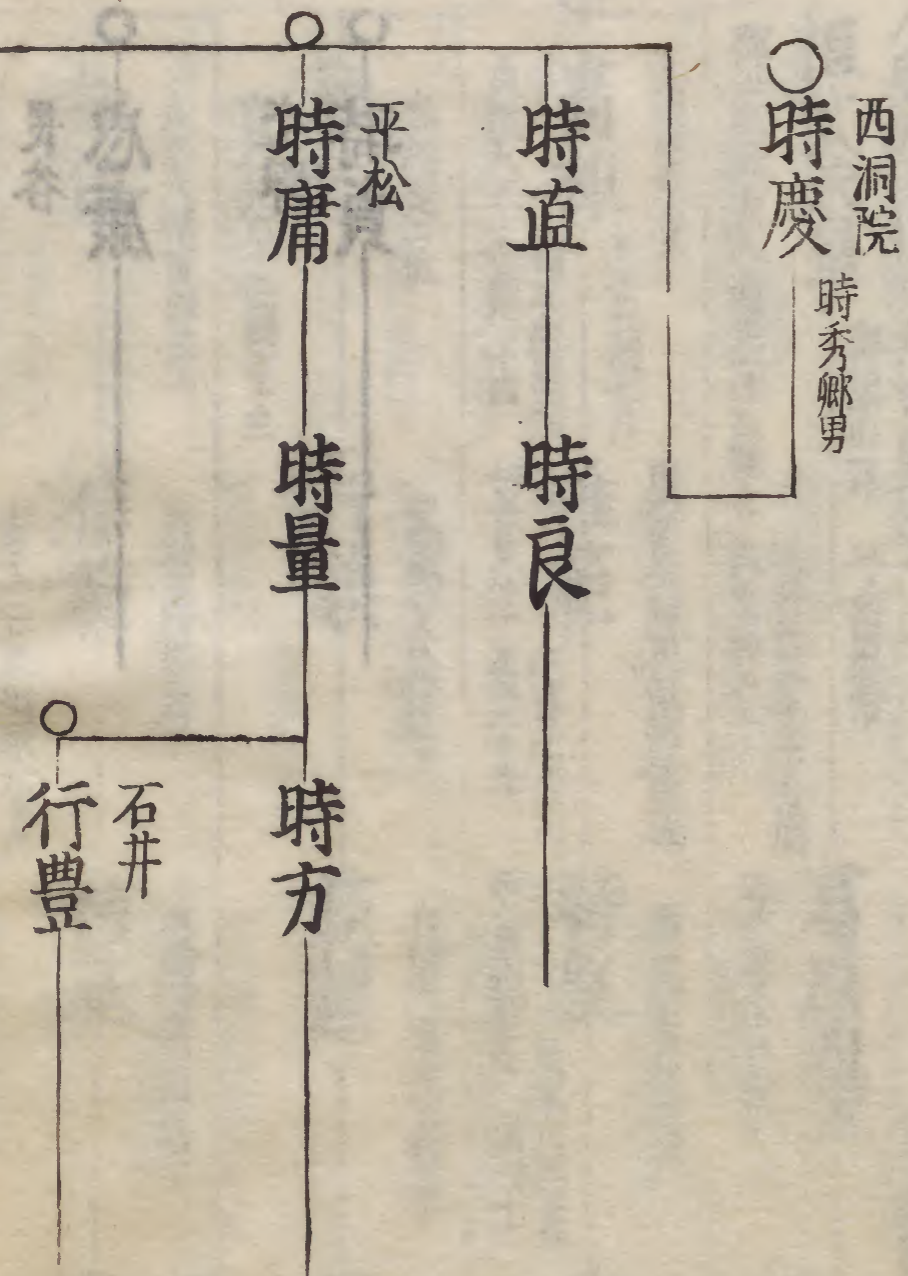 西洞院
時慶
時秀卿男
時直
時良
平松
時庸
時量
時方
石井
行豊